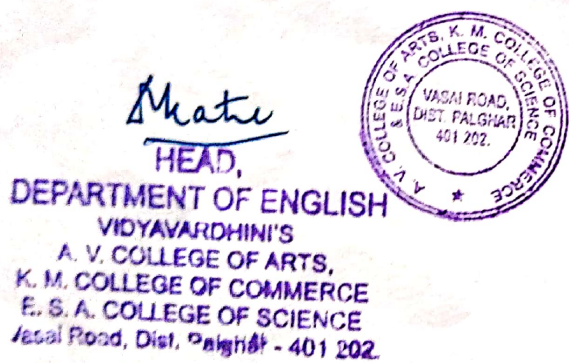 HEAD,
DEPARTMENT OF ENGLISH
VIDYAVARDHINI'S
A. V. COLLEGE OF ARTS,
K. M. COLLEGE OF COMMERCE
E. S. A. COLLEGE OF SCIENCE
Vasai Road, Dist. Palghar - 401 202.
A. V. COLLEGE OF ARTS, K. M. COLLEGE OF COMMERCE
& E.S.A. COLLEGE OF SCIENCE
VASAI ROAD,
DIST. PALGHAR
401 202.